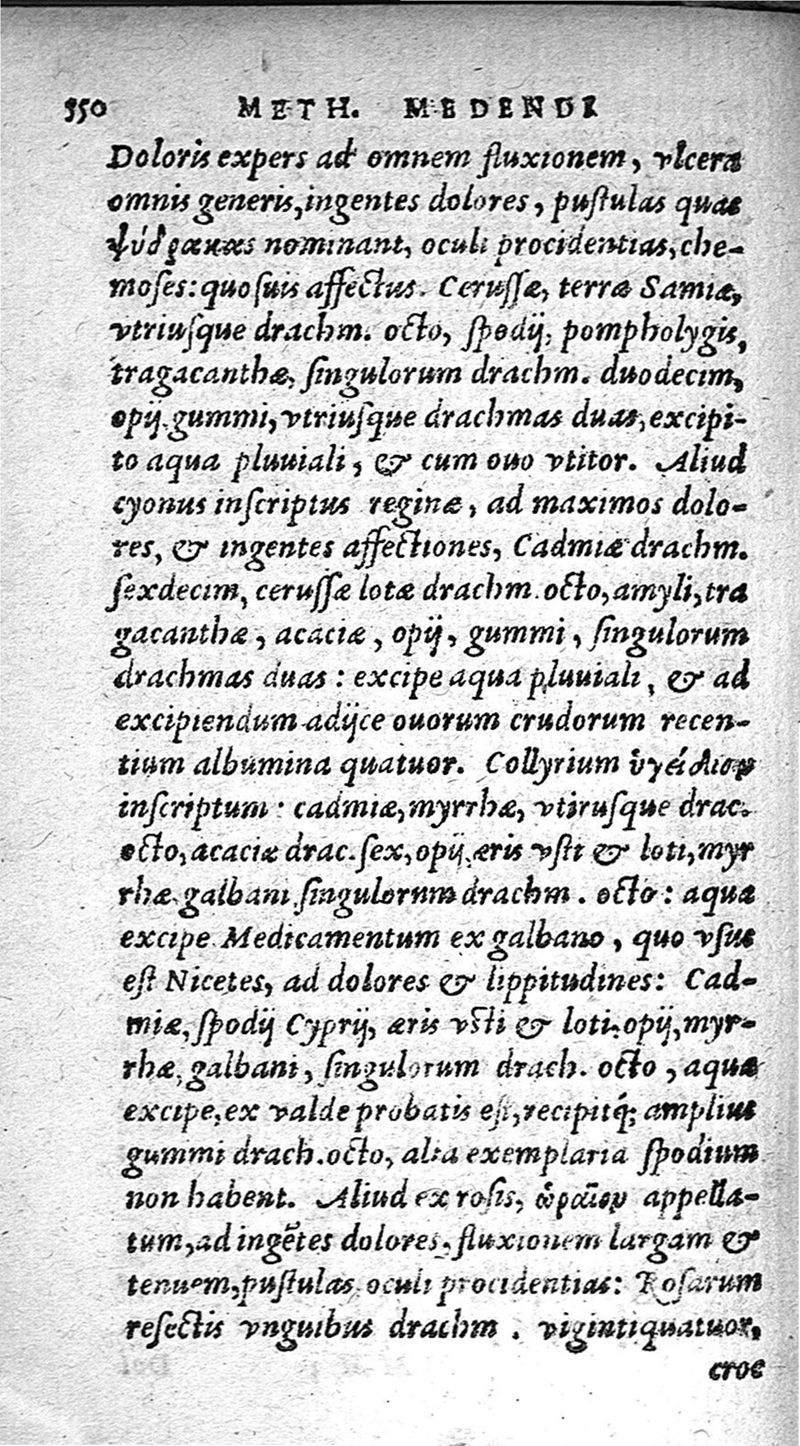 550 METH. MEDENDI
Doloris expers ad omnem fluxionem, vlcera
omnis generis, ingentes dolores, pustulas quas
ψύδρακας nominant, oculi procidentias, che-
moses: quosuis affectus. Cerussæ, terræ Samiæ,
vtriusque drachm. octo, spodij, pompholygis,
tragacanthæ, singulorum drachm. duodecim,
opij gummi, vtriusque drachmas duas, excipi-
to aqua pluuiali, & cum ouo vtitor. Aliud
cyonus inscriptus reginæ, ad maximos dolo-
res, & ingentes affectiones, Cadmiæ drachm.
sexdecim, cerussæ lotæ drachm. octo, amyli, tra
gacanthæ, acaciæ, opij, gummi, singulorum
drachmas duas: excipe aqua pluuiali, & ad
excipiendum adijce ouorum crudorum recen-
tium albumina quatuor. Collyrium ὑγείδιον
inscriptum: cadmiæ, myrrhæ, vtirusque drac.
octo, acaciæ drac. sex, opij, æris vsti & loti, myr
rhæ galbani singulorum drachm. octo: aqua
excipe. Medicamentum ex galbano, quo vsus
est Nicetes, ad dolores & lippitudines: Cad-
miæ, spodij Cyprij, æris vsti & loti, opij, myr-
rhæ, galbani, singulorum drach. octo, aqua
excipe, ex valde probatis est, recipitq́; amplius
gummi drach. octo, alia exemplaria spodium
non habent. Aliud ex rosis, ὡραῖον appella-
tum, ad ingẽtes dolores, fluxionem largam &
tenuem, pustulas, oculi procidentias: Rosarum
resectis vnguibus drachm. vigintiquatuor,
croc